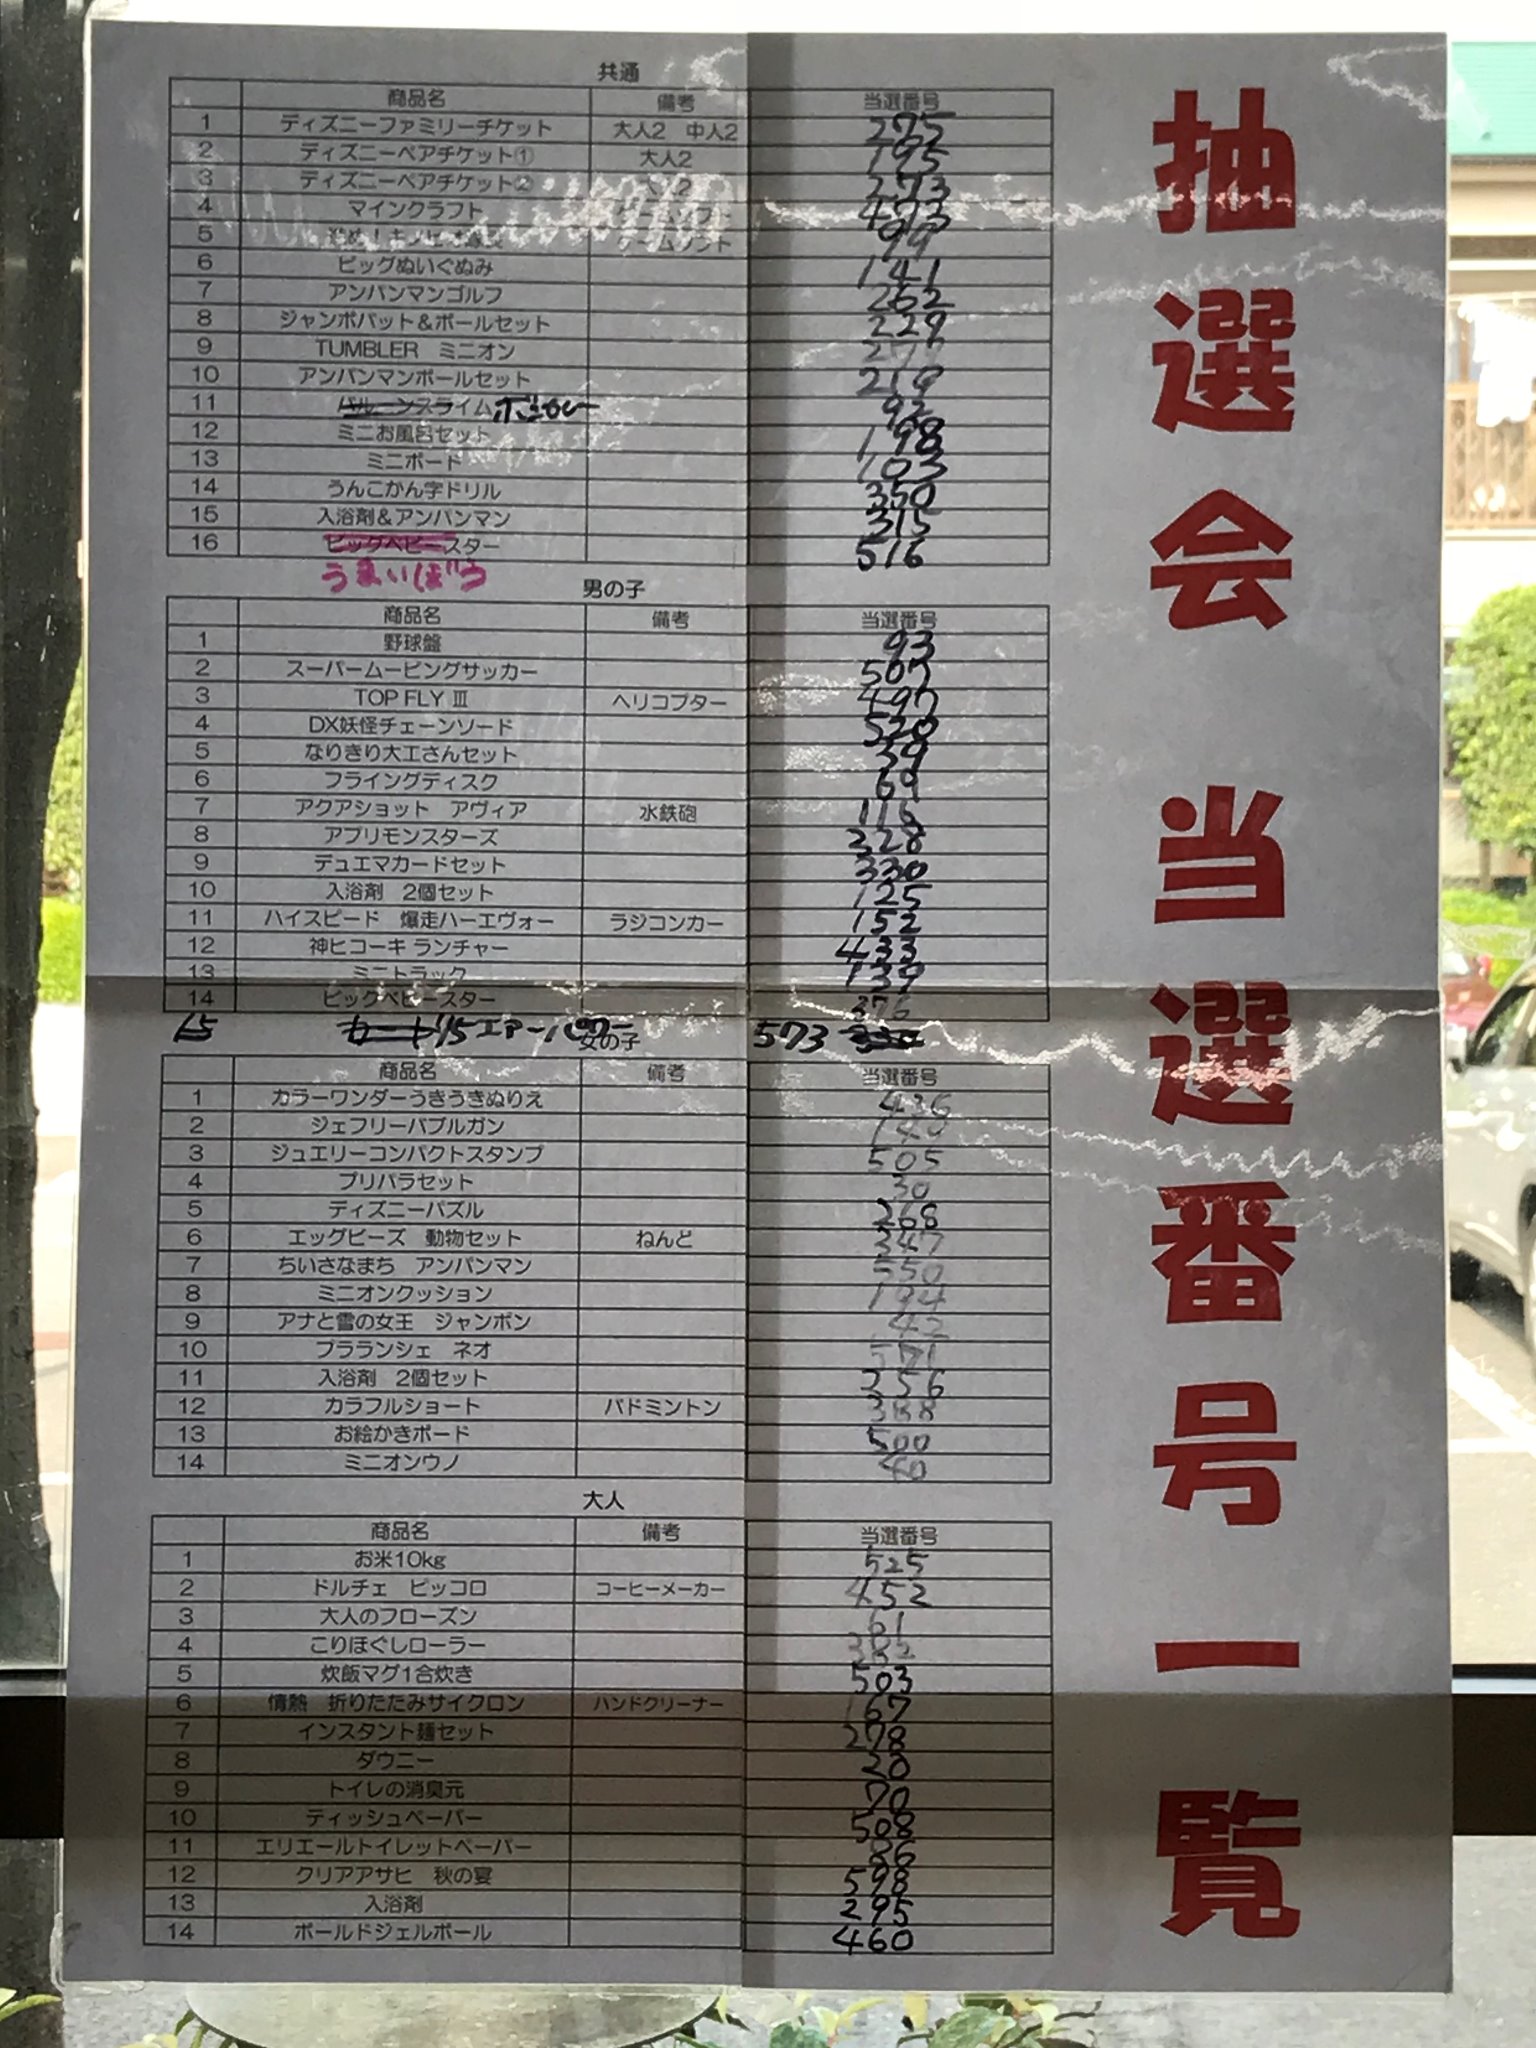 抽選会 当選番号一覧
共通
商品名 備考 当選番号
1 ディズニーファミリーチケット 大人2 中人2 275
2 ディズニーペアチケット① 大人2 195
3 ディズニーペアチケット② 大人2 273
4 マインクラフト ゲームソフト 473
5 ゲームソフト 99
6 ビッグぬいぐるみ 141
7 アンパンマンゴルフ 262
8 ジャンボバット&ボールセット 229
9 TUMBLER ミニオン
10 アンパンマンボールセット 219
11 バルーンスライム 92
12 ミニお風呂セット 198
13 ミニボード 103
14 うんこかん字ドリル 350
15 入浴剤&アンパンマン 315
16 ビッグベビースター 516
うまいぼう
男の子
商品名 備考 当選番号
1 野球盤 93
2 スーパームービングサッカー 507
3 TOP FLY Ⅲ ヘリコプター 497
4 DX妖怪チェーンソード 520
5 なりきり大工さんセット 39
6 フライングディスク 69
7 アクアショット アヴィア 水鉄砲 116
8 アプリモンスターズ 328
9 デュエマカードセット 330
10 入浴剤 2個セット 125
11 ハイスピード 爆走ハーエヴォー ラジコンカー 152
12 神ヒコーキ ランチャー 433
13 ミニトラック 139
14 ビッグベビースター 376
15 エアーパワー 573
女の子
商品名 備考 当選番号
1 カラーワンダーうきうきぬりえ 436
2 ジェフリーバブルガン 140
3 ジュエリーコンパクトスタンプ 505
4 プリパラセット 30
5 ディズニーパズル 268
6 エッグビーズ 動物セット ねんど 347
7 ちいさなまち アンパンマン 550
8 ミニオンクッション 194
9 アナと雪の女王 ジャンボン 42
10 プラランシェ ネオ 571
11 入浴剤 2個セット 256
12 カラフルショート バドミントン 388
13 お絵かきボード 500
14 ミニオンウノ 40
大人
商品名 備考 当選番号
1 お米10kg 525
2 ドルチェ ピッコロ コーヒーメーカー 452
3 大人のフローズン 61
4 こりほぐしローラー 382
5 炊飯マグ1合炊き 503
6 情熱 折りたたみサイクロン ハンドクリーナー 167
7 インスタント麺セット 278
8 ダウニー 20
9 トイレの消臭元 70
10 ティッシュペーパー 508
11 エリエールトイレットペーパー 86
12 クリアアサヒ 秋の宴 598
13 入浴剤 295
14 ボールドジェルボール 460